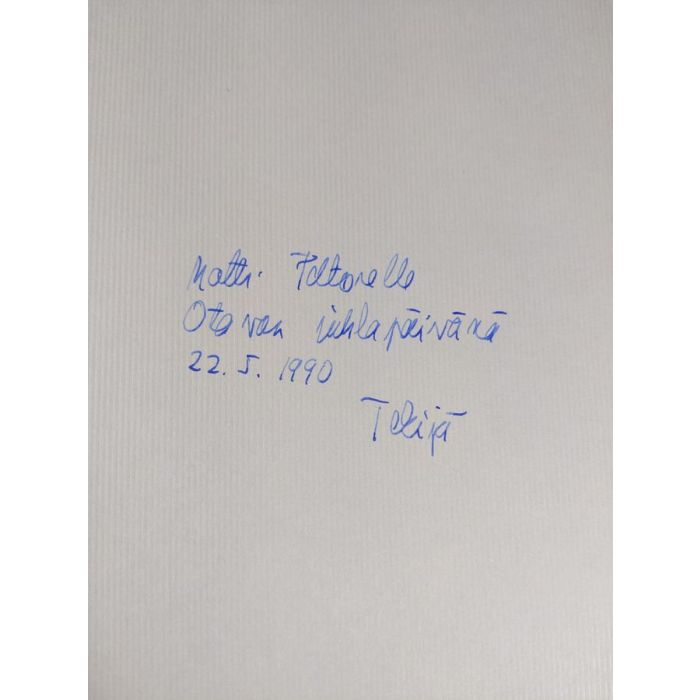 Matti
Otavan juhlapäivänä
22.5.1990
Tekijä